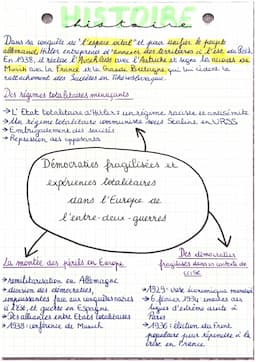 HISTOIRE
histoire
Dans sa conquête de "l'espace vital" et pour unifier le peuple
allemand, Hitler entreprend d'annexer des territoires à l'est du Reich.
En 1938, il réalise l'Anschluss avec l'Autriche et signe les accords de
Munich avec la France et la Grande Bretagne, qui lui cèdent le
rattachement des Sudètes en Tchécoslovaquie.
Des régimes totalitaires menaçants
→ L'Etat totalitaire d'Hitler: un régime raciste et antisémite
→ Un régime totalitaire communiste sous Staline en URSS
→ Embrigadement des sociétés
→ Répression des opposants
Démocraties fragilisées et
expériences totalitaires
dans l'Europe de
l'entre-deux-guerres
La montée des périls en Europe
→ remilitarisation en Allemagne
→ division des démocraties,
impuissantes face aux conquêtes nazies
à l'est, et guerre en Espagne
→ Des alliances entre Etats totalitaires
→ 1938: conférence de Munich
Des démocraties
fragilisées dans un contexte de
crise
→ 1929: crise économique mondiale
→ 6 février 1934: émeutes des
ligues d'extrême droite à
Paris
→ 1936: élection du Front
populaire pour répondre à la
crise en France